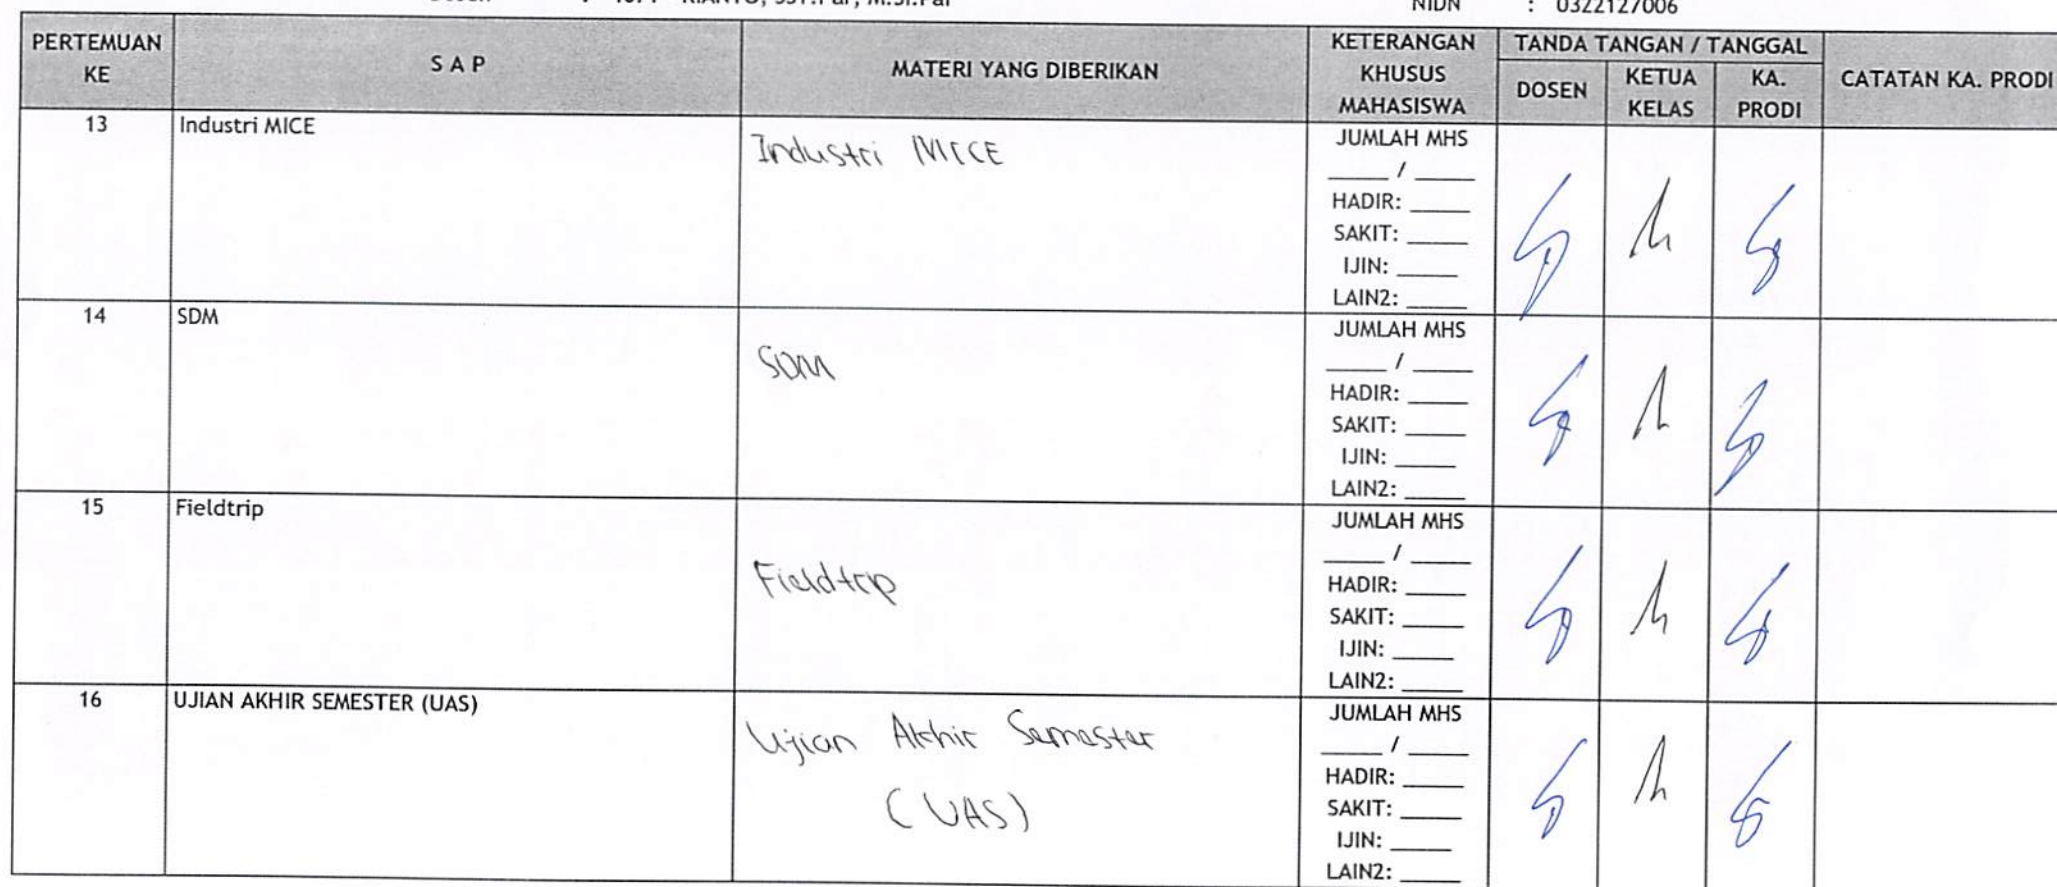 RIANTO, SST.Par, M.Si.Par
NIDN : 0322127006
PERTEMUAN KE
S A P
MATERI YANG DIBERIKAN
KETERANGAN KHUSUS MAHASISWA
TANDA TANGAN / TANGGAL
DOSEN
KETUA KELAS
KA. PRODI
CATATAN KA. PRODI
13
Industri MICE
Industri MICE
JUMLAH MHS
____ / ____
HADIR: ____
SAKIT: ____
IJIN: ____
LAIN2: ____
14
SDM
SDM
JUMLAH MHS
____ / ____
HADIR: ____
SAKIT: ____
IJIN: ____
LAIN2: ____
15
Fieldtrip
Fieldtrip
JUMLAH MHS
____ / ____
HADIR: ____
SAKIT: ____
IJIN: ____
LAIN2: ____
16
UJIAN AKHIR SEMESTER (UAS)
Ujian Akhir Semester
(UAS)
JUMLAH MHS
____ / ____
HADIR: ____
SAKIT: ____
IJIN: ____
LAIN2: ____